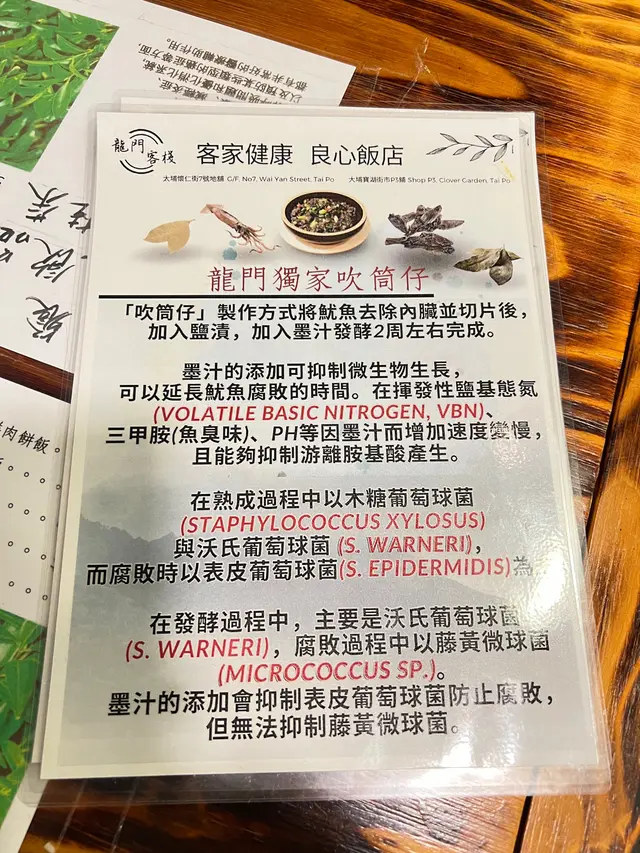 都有非常好的醫療輔助作用。
以及預防某些類型的癌症等方面,
龍門
客棧
客家健康 良心飯店
大埔懷仁街7號地舖 G/F, No7, Wai Yan Street, Tai Po
大埔寶湖街市P3舖 Shop P3, Clover Garden, Tai Po
龍門獨家吹筒仔
「吹筒仔」製作方式將魷魚去除內臟並切片後,
加入鹽漬,加入墨汁發酵2周左右完成。
墨汁的添加可抑制微生物生長,
可以延長魷魚腐敗的時間。在揮發性鹽基態氮
(VOLATILE BASIC NITROGEN, VBN)、
三甲胺(魚臭味)、PH等因墨汁而增加速度變慢,
且能夠抑制游離胺基酸產生。
在熟成過程中以木糖葡萄球菌
(STAPHYLOCOCCUS XYLOSUS)
與沃氏葡萄球菌 (S. WARNERI),
而腐敗時以表皮葡萄球菌(S. EPIDERMIDIS)為
在發酵過程中,主要是沃氏葡萄球菌
(S. WARNERI),腐敗過程中以藤黃微球菌
(MICROCOCCUS SP.)。
墨汁的添加會抑制表皮葡萄球菌防止腐敗,
但無法抑制藤黃微球菌。
肉餅飯